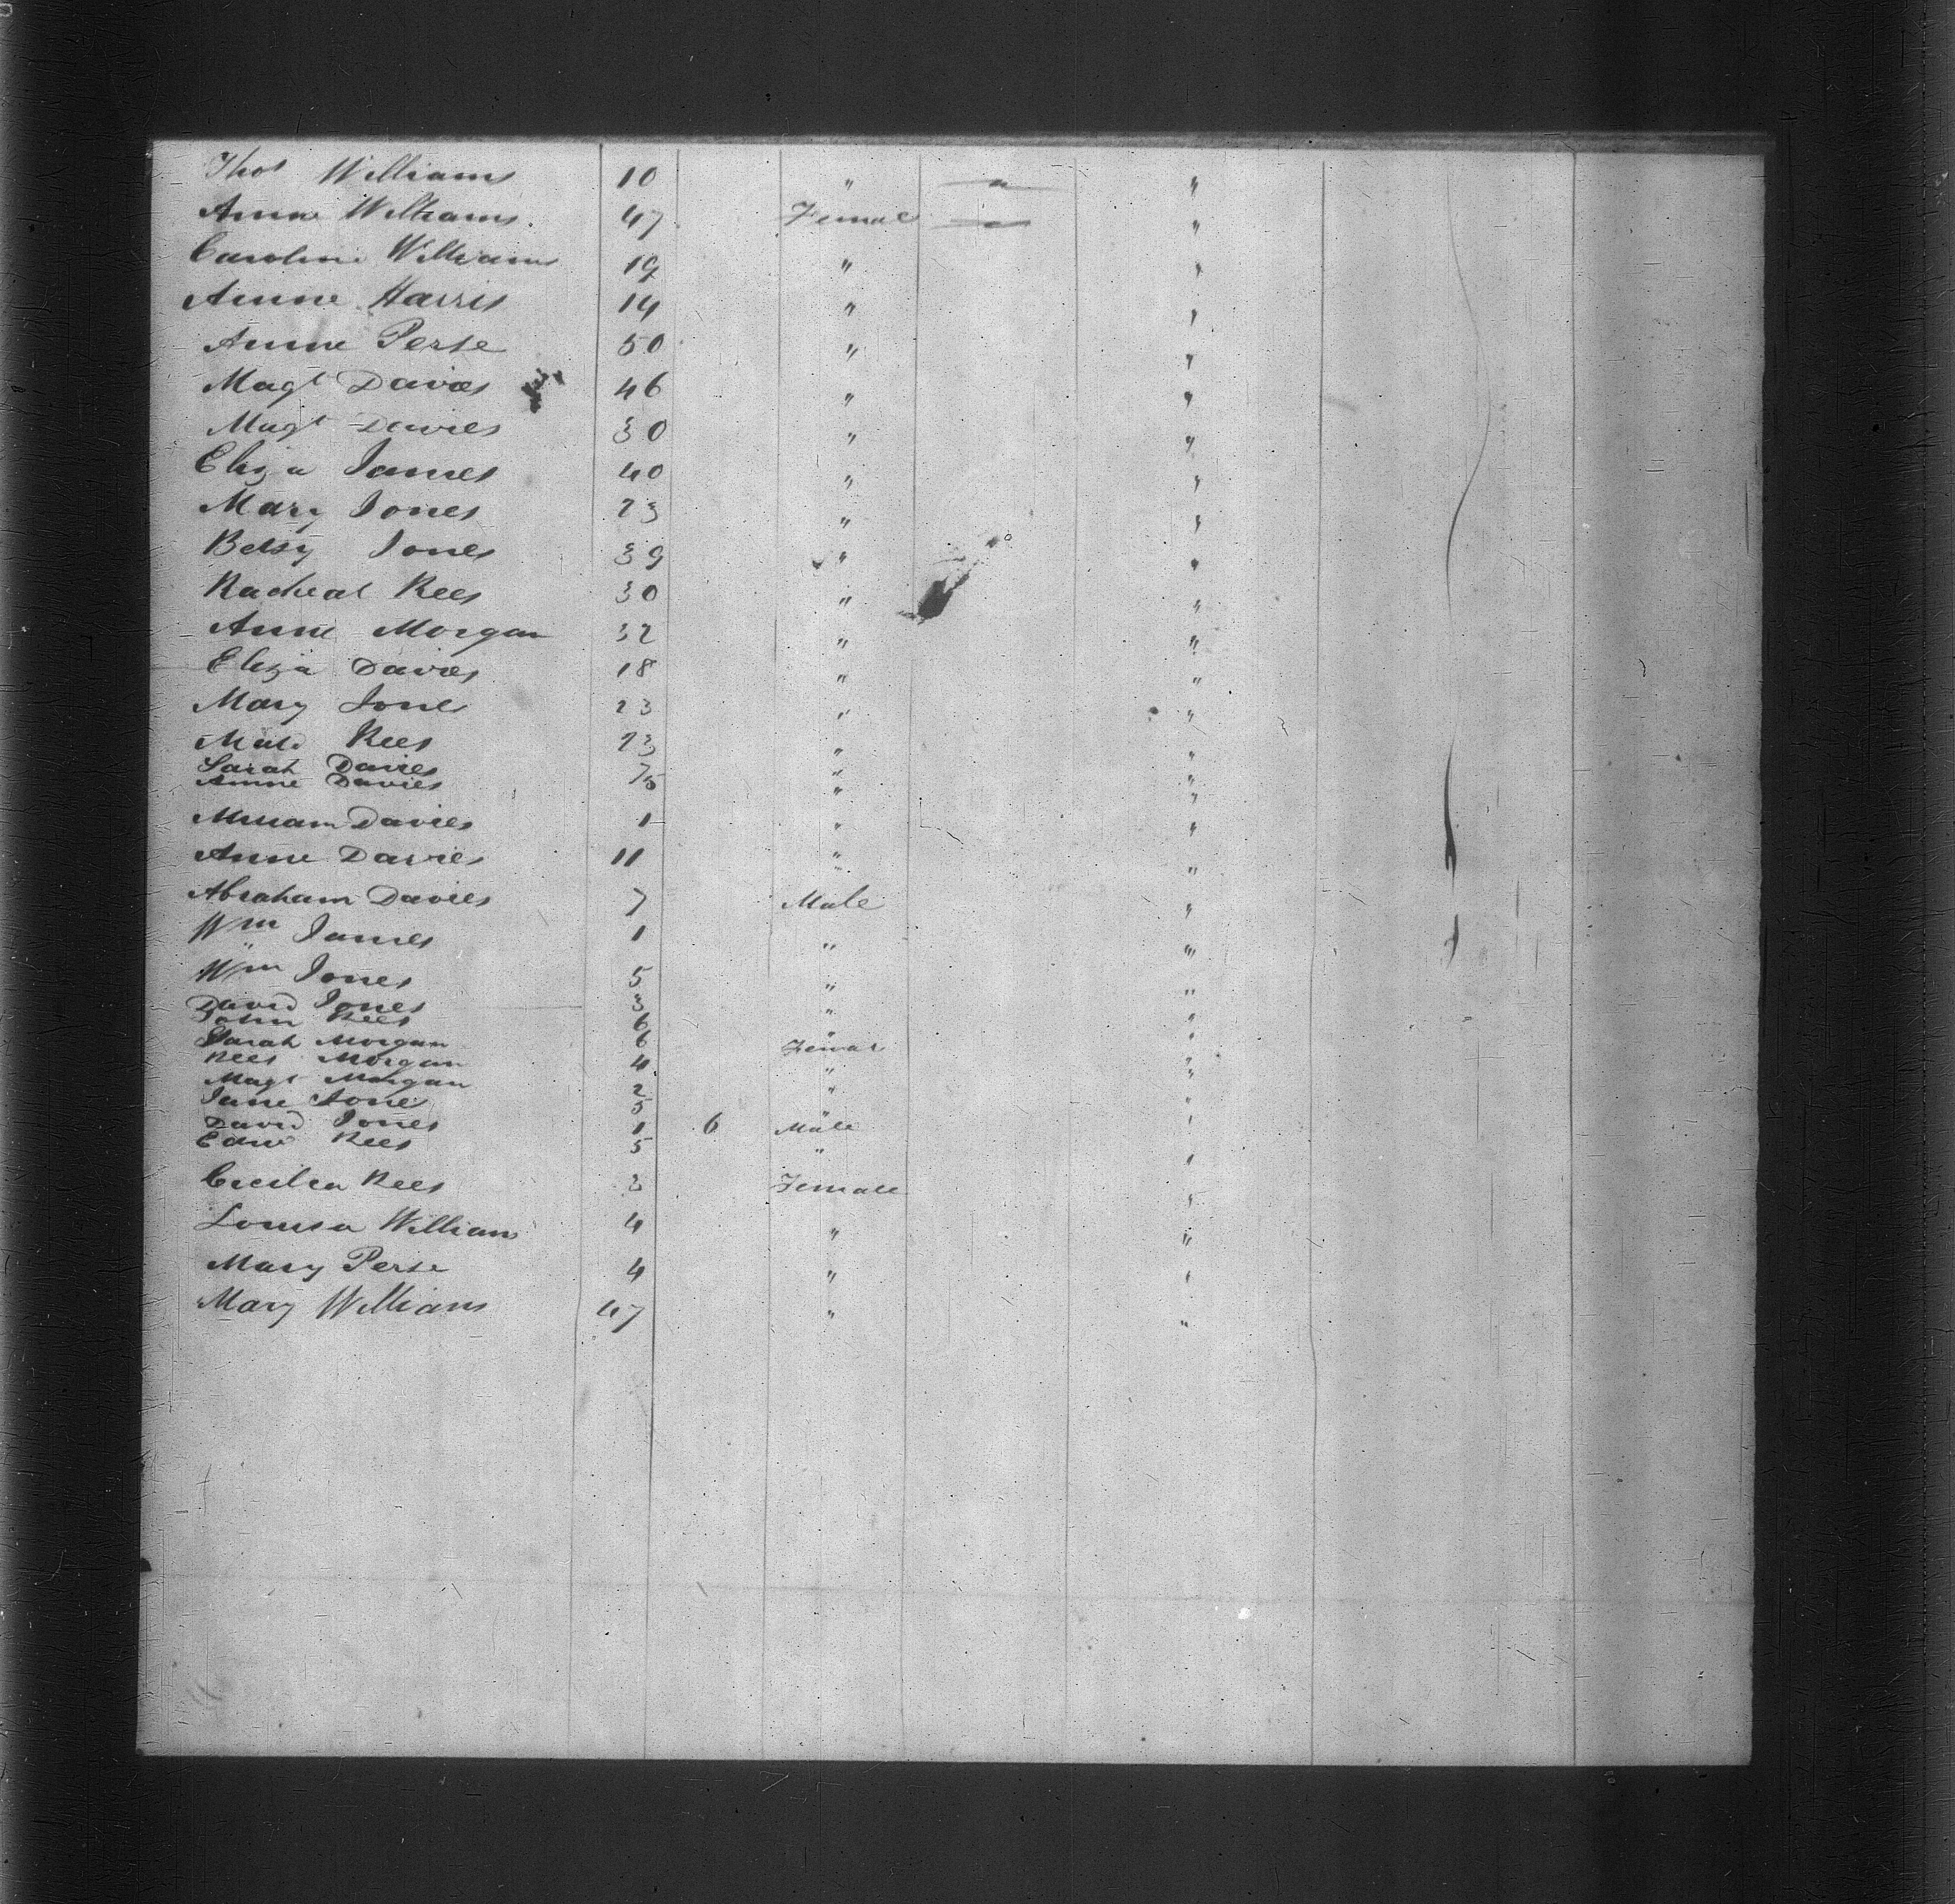 Thos Williams 10 " " "
Anna Williams 47 Female " "
Caroline Williams 19 " "
Anne Harris 14 " "
Anne Perse 50 " "
Magt Davies 46 " "
Magt Davies 30 " "
Eliza James 40 " "
Mary Jones 23 " "
Betsy Jones 39 " "
Racheal Rees 30 " "
Anne Morgan 32 " "
Eliza Davies 18 " "
Mary Jones 23 " "
Rees 23 " "
Sarah Davies 7 " "
Anne Davies 5 " "
Miriam Davies 1 " "
Anne Davies 11 " "
Abraham Davies 7 Male "
Wm James 1 " "
Wm Jones 5 " "
David Jones 3 " "
John Rees 6 " "
Sarah Morgan 6 Femal "
Rees Morgan 4 " "
Magt Morgan 2 " "
Jane Jones 5 "
David Jones 1 6 Male "
Edwd Rees 5 " "
Cecilia Rees 3 Female "
Louisa Williams 4 " "
Mary Perse 4 " "
Mary Williams 47 " "